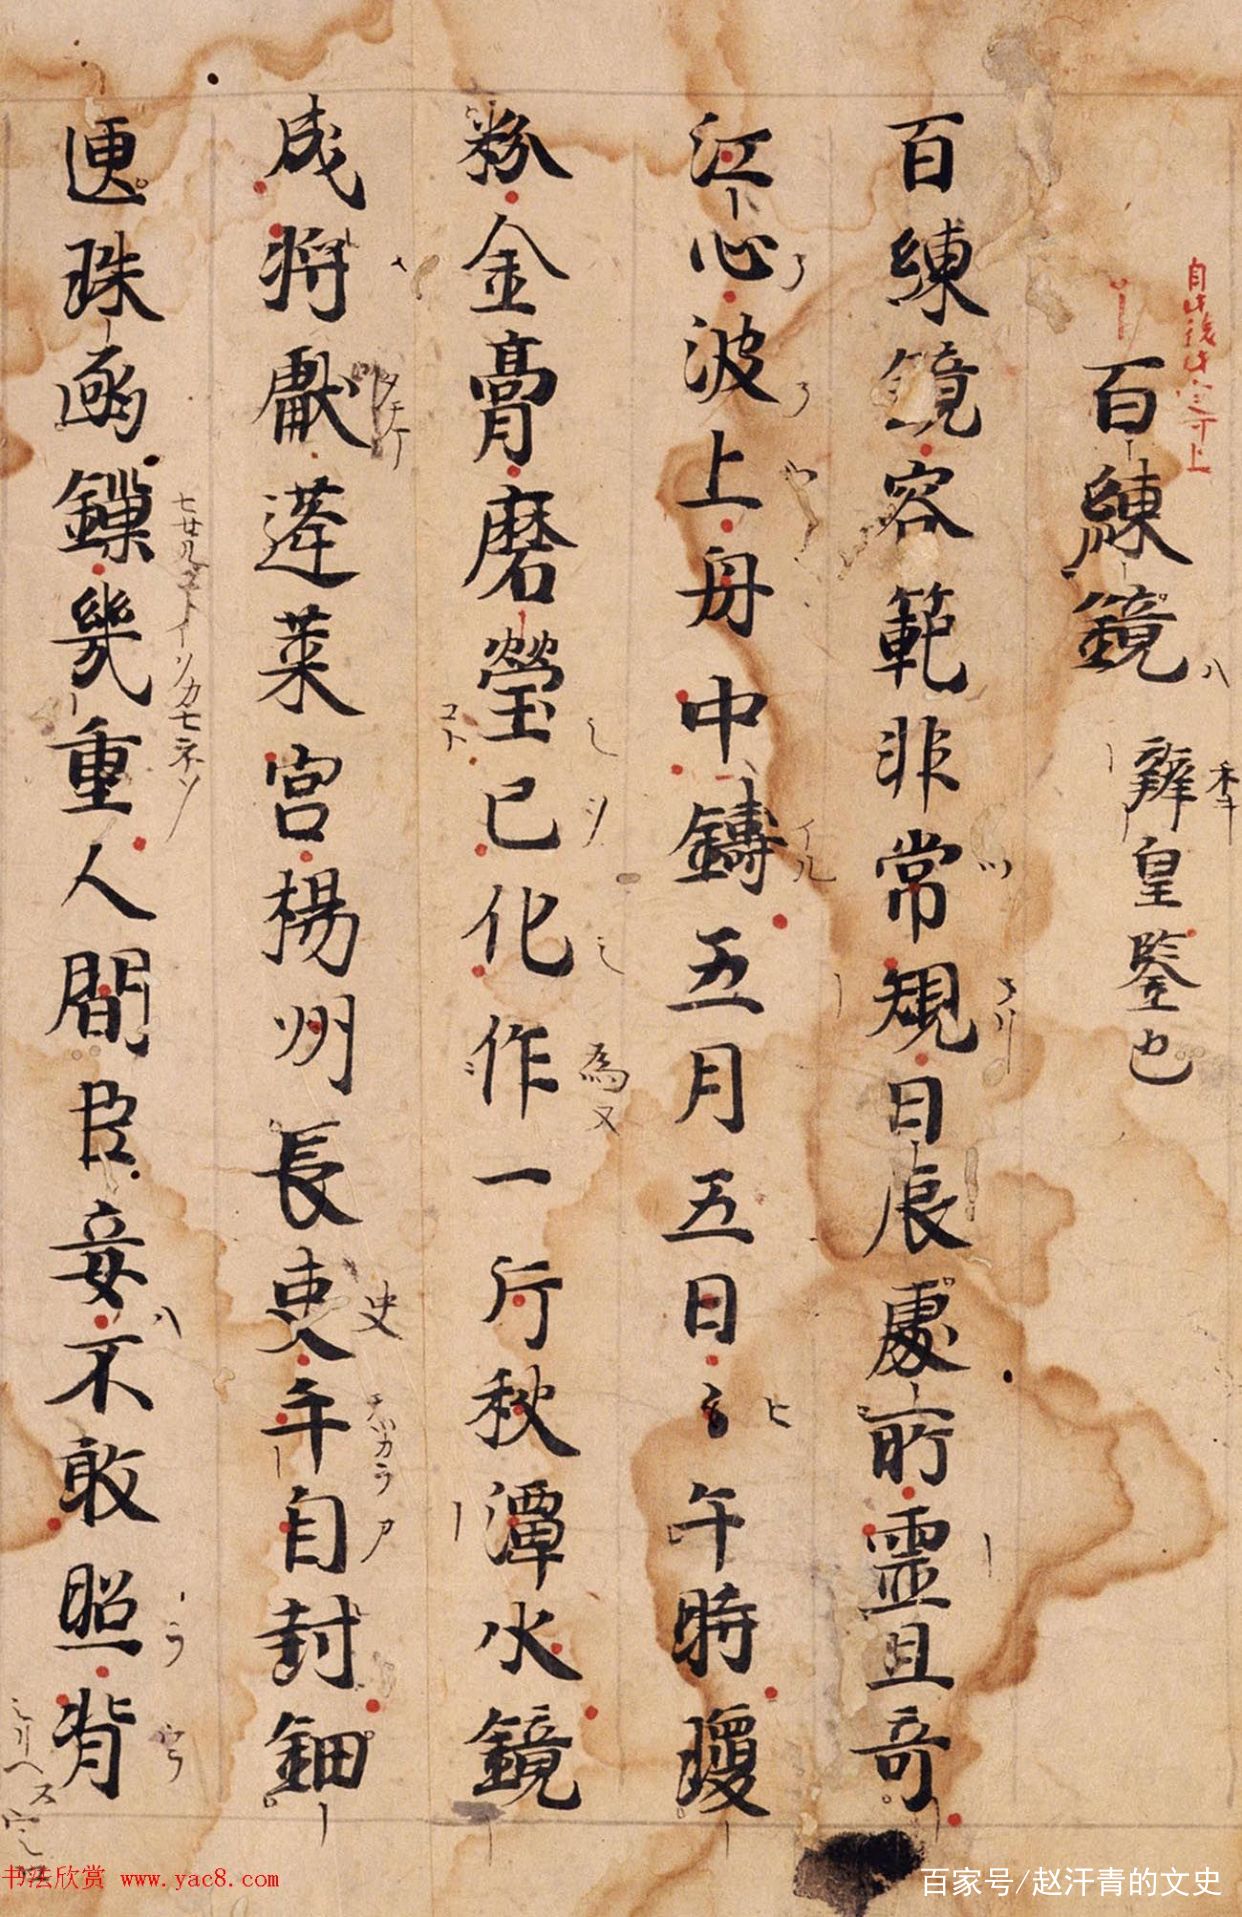 百練鏡 辨皇鑒也
百練鏡容範非常規日辰處所靈且奇
江心波上舟中鑄五月五日々午時瓊
粉金膏磨瑩已化作一片秋潭水鏡
成將獻蓬萊宮揚州長吏手自封鈿
匣珠函鏁幾重人間臣妾不敢照背
為又
史
书法欣赏 www.yac8.com
百家号/赵汗青的文史